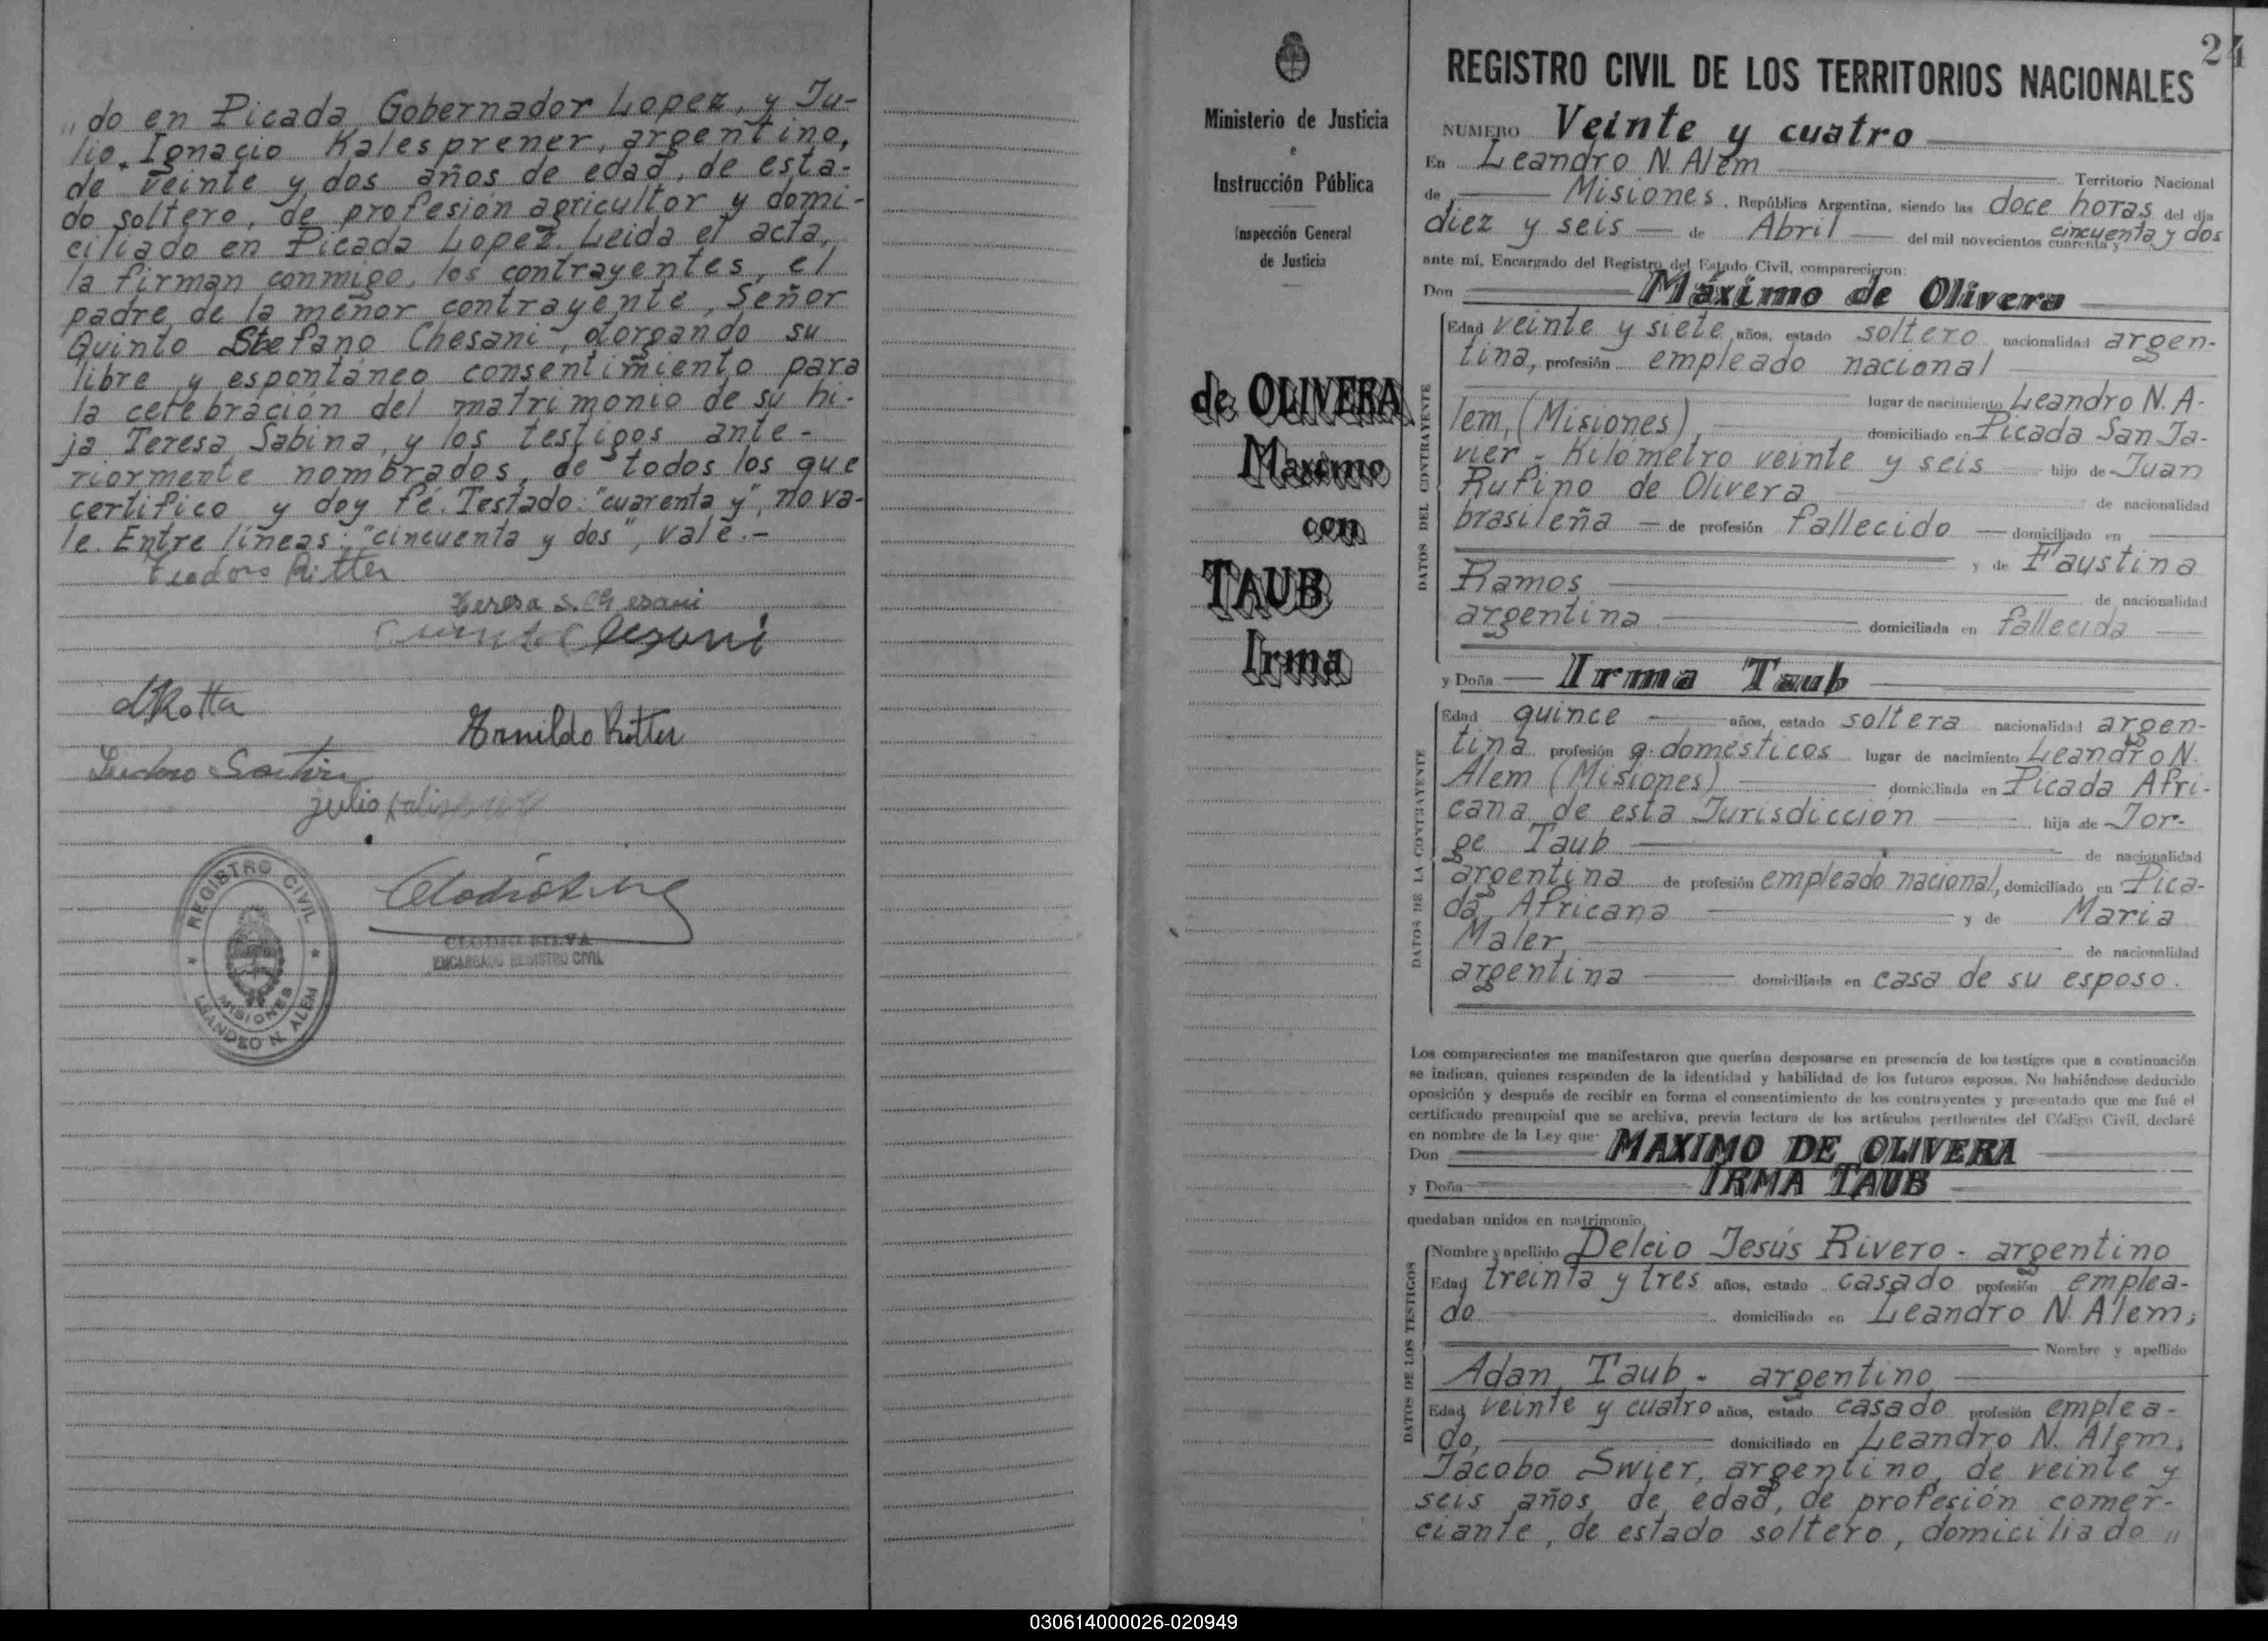 „do en Picada Gobernador Lopez, y Ju-
lio Ignacio Kalesprener, argentino,
de veinte y dos años de edad, de esta-
do soltero, de profesión agricultor y domi-
ciliado en Picada Lopez. Leida el acta,
la firman conmigo, los contrayentes, el
padre de la menor contrayente, Señor
Quinto Stefano Chesani, otorgando su
libre y espontaneo consentimiento para
la celebración del matrimonio de su hi-
ja Teresa Sabina, y los testigos ante-
riormente nombrados, de todos los que
certifico y doy fé. Testado: "cuarenta y", no va-
le. Entre líneas: "cincuenta y dos", vale.-
Teodoro Ritter
Teresa S. Chesani
Chesani
LRotta
Arnildo Ritter
Julio
REGISTRO CIVIL
MISIONES
LEANDRO N. ALEM
CLODIO SILVA
ENCARGADO REGISTRO CIVIL
Ministerio de Justicia
e
Instrucción Pública
Inspección General
de Justicia
de OLIVERA
Maximo
con
TAUB
Irma
24
REGISTRO CIVIL DE LOS TERRITORIOS NACIONALES
NUMERO Veinte y cuatro
En Leandro N. Alem Territorio Nacional
de Misiones, República Argentina, siendo las doce horas del día
diez y seis de Abril del mil novecientos cuarenta y cincuenta y dos
ante mí, Encargado del Registro del Estado Civil, comparecieron:
Don Máximo de Olivera
DATOS DEL CONTRAYENTE
Edad veinte y siete años, estado soltero nacionalidad argen-
tina, profesión empleado nacional
lugar de nacimiento Leandro N. A-
lem, (Misiones) domiciliado en Picada San Ja-
vier - Kilómetro veinte y seis hijo de Juan
Rufino de Olivera de nacionalidad
brasileña de profesión fallecido domiciliado en
y de Faustina
Ramos de nacionalidad
argentina domiciliada en fallecida
y Doña Irma Taub
DATOS DE LA CONTRAYENTE
Edad quince años, estado soltera nacionalidad argen-
tina profesión q. domésticos lugar de nacimiento Leandro N.
Alem (Misiones) domiciliada en Picada Afri-
cana de esta Jurisdicción hija de Jor-
ge Taub de nacionalidad
argentina de profesión empleado nacional, domiciliado en Pica-
da Africana y de Maria
Maler, de nacionalidad
argentina domiciliada en casa de su esposo.
Los comparecientes me manifestaron que querían desposarse en presencia de los testigos que a continuación
se indican, quienes responden de la identidad y habilidad de los futuros esposos. No habiéndose deducido
oposición y después de recibir en forma el consentimiento de los contrayentes y presentado que me fué el
certificado prenupcial que se archiva, previa lectura de los artículos pertinentes del Código Civil, declaré
en nombre de la Ley que:
Don MAXIMO DE OLIVERA
y Doña IRMA TAUB
quedaban unidos en matrimonio.
DATOS DE LOS TESTIGOS
Nombre y apellido Delcio Jesús Rivero - argentino
Edad treinta y tres años, estado casado profesión emplea-
do domiciliado en Leandro N. Alem;
Nombre y apellido
Adan Taub - argentino
Edad veinte y cuatro años, estado casado profesión emplea-
do, domiciliado en Leandro N. Alem;
Jacobo Swier, argentino, de veinte y
seis años de edad, de profesión comer-
ciante, de estado soltero, domiciliado „
030614000026-020949